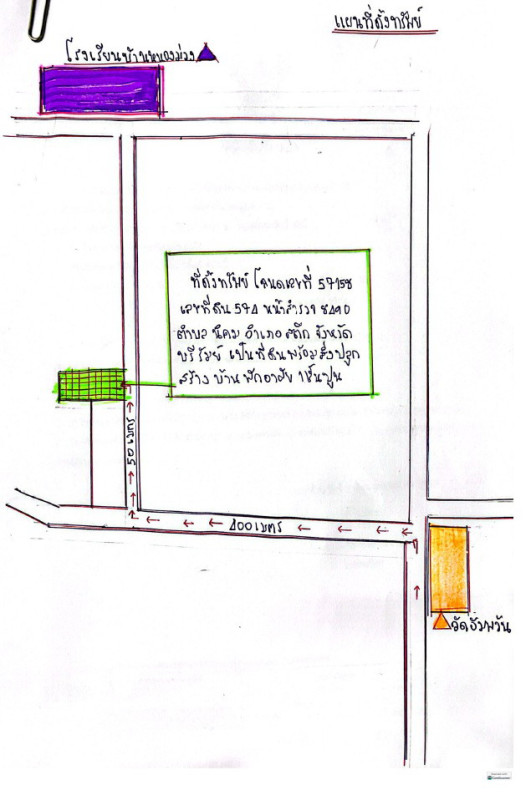 แผนที่ตั้งทรัพย์
โรงเรียนบ้านหนองม่วง
ที่ตั้งทรัพย์ โฉนดเลขที่ 57158
เลขที่ดิน 574 หน้าสำรวจ 8490
ตำบล นิคม อำเภอ สตึก จังหวัด
บุรีรัมย์ เป็นที่ดินพร้อมสิ่งปลูก
สร้าง บ้านพักอาศัย 1ชั้นปูน
50 เมตร
400 เมตร
วัดอัมพวัน